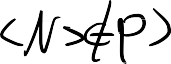 <N>∉P>